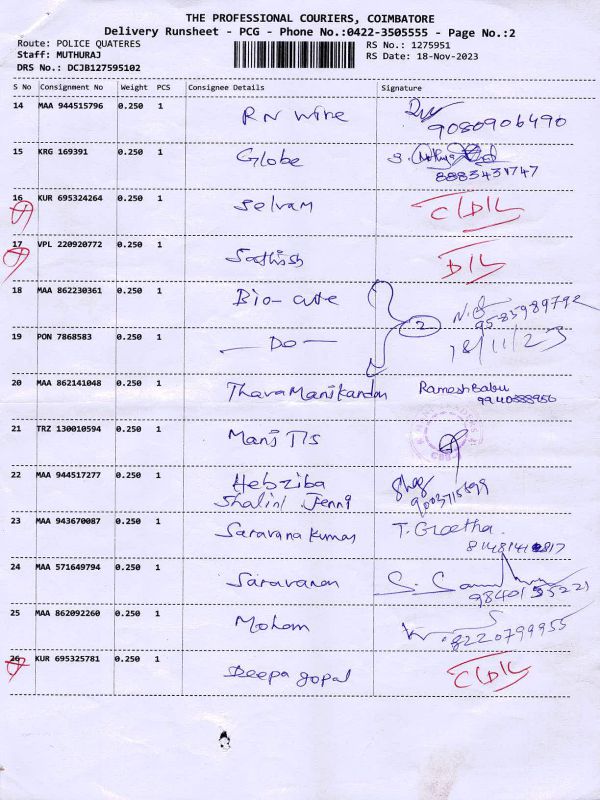 THE PROFESSIONAL COURIERS, COIMBATORE
Delivery Runsheet - PCG - Phone No.:0422-3505555 - Page No.:2
Route: POLICE QUATERES RS No.: 1275951
Staff: MUTHURAJ RS Date: 18-Nov-2023
DRS No.: DCJB127595102
S No Consignment No Weight PCS Consignee Details Signature
14 MAA 944515796 0.250 1 RN Wine
9080906490
15 KRG 169391 0.250 1 Globe
8883431747
16 KUR 695324264 0.250 1 Selvam C/D/L
17 VPL 220920772 0.250 1 Sathish D/L
18 MAA 862230361 0.250 1 Bio-cure
9585989792
19 PON 7868583 0.250 1 — Do — 2 18/11/23
20 MAA 862141048 0.250 1 ThavaManikandan RameshBabu
9940888956
21 TRZ 130010594 0.250 1 Mani Tls
22 MAA 944517277 0.250 1 Hebziba
Shalini Jenni 9003715899
23 MAA 943670087 0.250 1 Saravana Kumar T. Geetha
24 MAA 571649794 0.250 1 Saravanan
25 MAA 862092260 0.250 1 Mohan
8220799955
26 KUR 695325781 0.250 1 Deepa gopal C/D/L